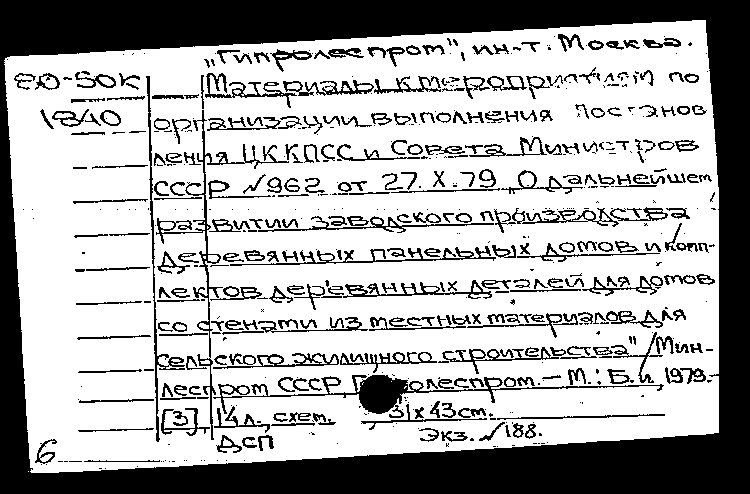 „Гипролеспром", ин-т. Москва.
80-50к Материалы к мероприятиям по
1840 организации выполнения Постанов
ления ЦК КПСС и Совета Министров
СССР №962 от 27.X.79 „О дальнейшем
развитии заводского производства
деревянных панельных домов и комп-
лектов деревянных деталей для домов
со стенами из местных материалов для
сельского жилищного строительства" / Мин-
леспром СССР, Гипролеспром. – М.: Б.и., 1979. –
[3], 14 л., схем. , 31 х 43 см.
ДСП Экз. №188.
6